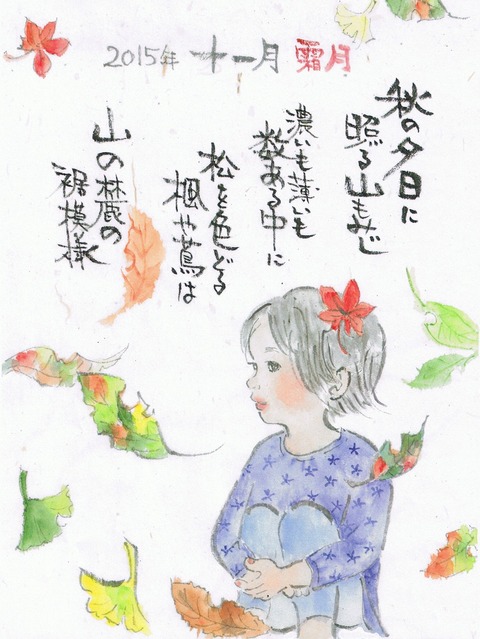 2015年 十一月 霜月
秋の夕日に
照る山もみじ
濃いも薄いも
数ある中に
松を色どる
楓や蔦は
山の麓の
裾模様